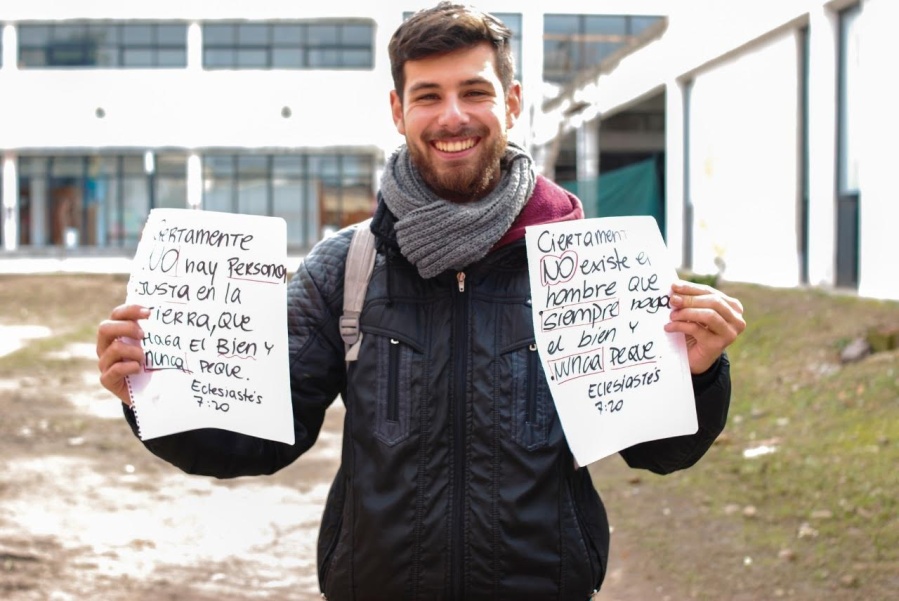 CIERTAMENTE
.NO hay PERSONA
.JUSTA en la
TIERRA, QUE
HAGA El Bien Y
nunca PEQUE.
Eclesiastés
7:20
Ciertament
NO existe el
hombre QUE
.siempre haga
el bien y
.Nunca PEQUE.
Eclesiastés
7:20